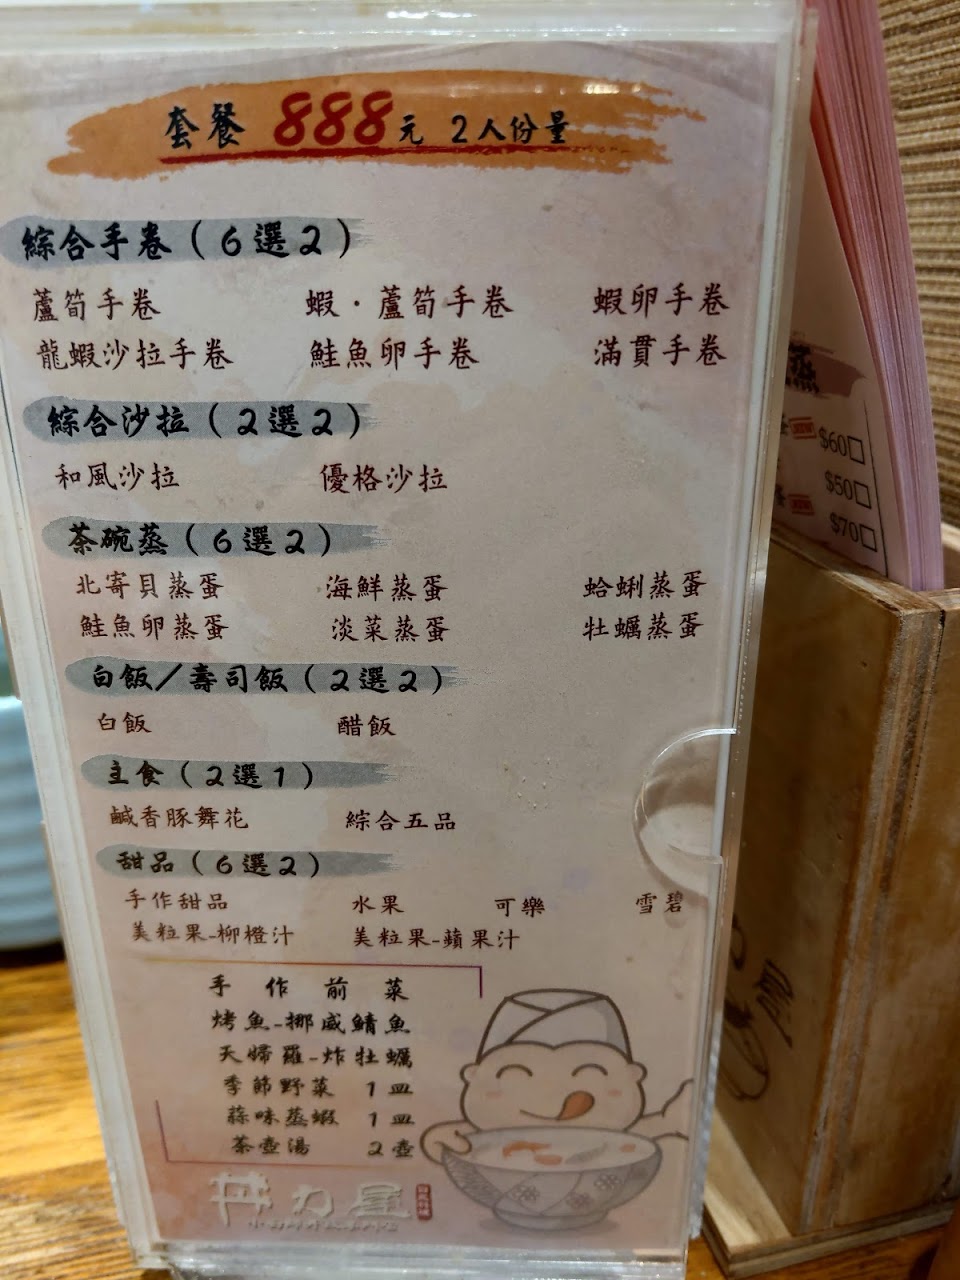 套餐 888元 2人份量
綜合手卷(6選2)
蘆筍手卷 蝦·蘆筍手卷 蝦卵手卷
龍蝦沙拉手卷 鮭魚卵手卷 滿貫手卷
綜合沙拉(2選2)
和風沙拉 優格沙拉
茶碗蒸(6選2)
北寄貝蒸蛋 海鮮蒸蛋 蛤蜊蒸蛋
鮭魚卵蒸蛋 淡菜蒸蛋 牡蠣蒸蛋
白飯/壽司飯(2選2)
白飯 醋飯
主食(2選1)
鹹香豚舞花 綜合五品
甜品(6選2)
手作甜品 水果 可樂 雪碧
美粒果-柳橙汁 美粒果-蘋果汁
手作前菜
烤魚-挪威鯖魚
天婦羅-炸牡蠣
季節野菜 1皿
蒜味蒸蝦 1皿
茶壺湯 2壺
丼力屋
蒸
$60
$50
$70